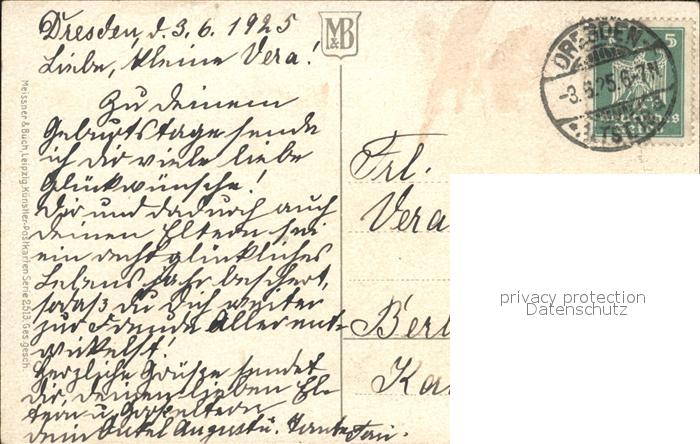 Dresden, d. 3.6.1925
Liebe, kleine Vera!
Zu Deinem
Geburtstage sende
ich dir viele liebe
Glückwünsche!
Dir und dadurch auch
deinen Eltern sei
ein recht glückliches
Lebensjahr beschert,
sodaß du Dich weiter
zur Freude Aller ent-
wickelst!
Herzliche Grüße sendet
dir, deinen lieben El-
tern u. Großeltern
dein Onkel August u. Tante
M&B
Meissner & Buch, Leipzig. Künstler-Postkarten Serie 2513. Ges. gesch.
DRESDEN
-3.6.25.6-7
5
Deutsches
Reich
Frl.
Vera
Berl
privacy protection
Datenschutz